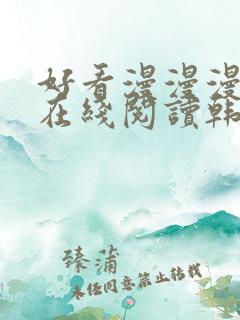 好看漫漫漫
在线阅读韩
臻蒲
未经同意禁止转载